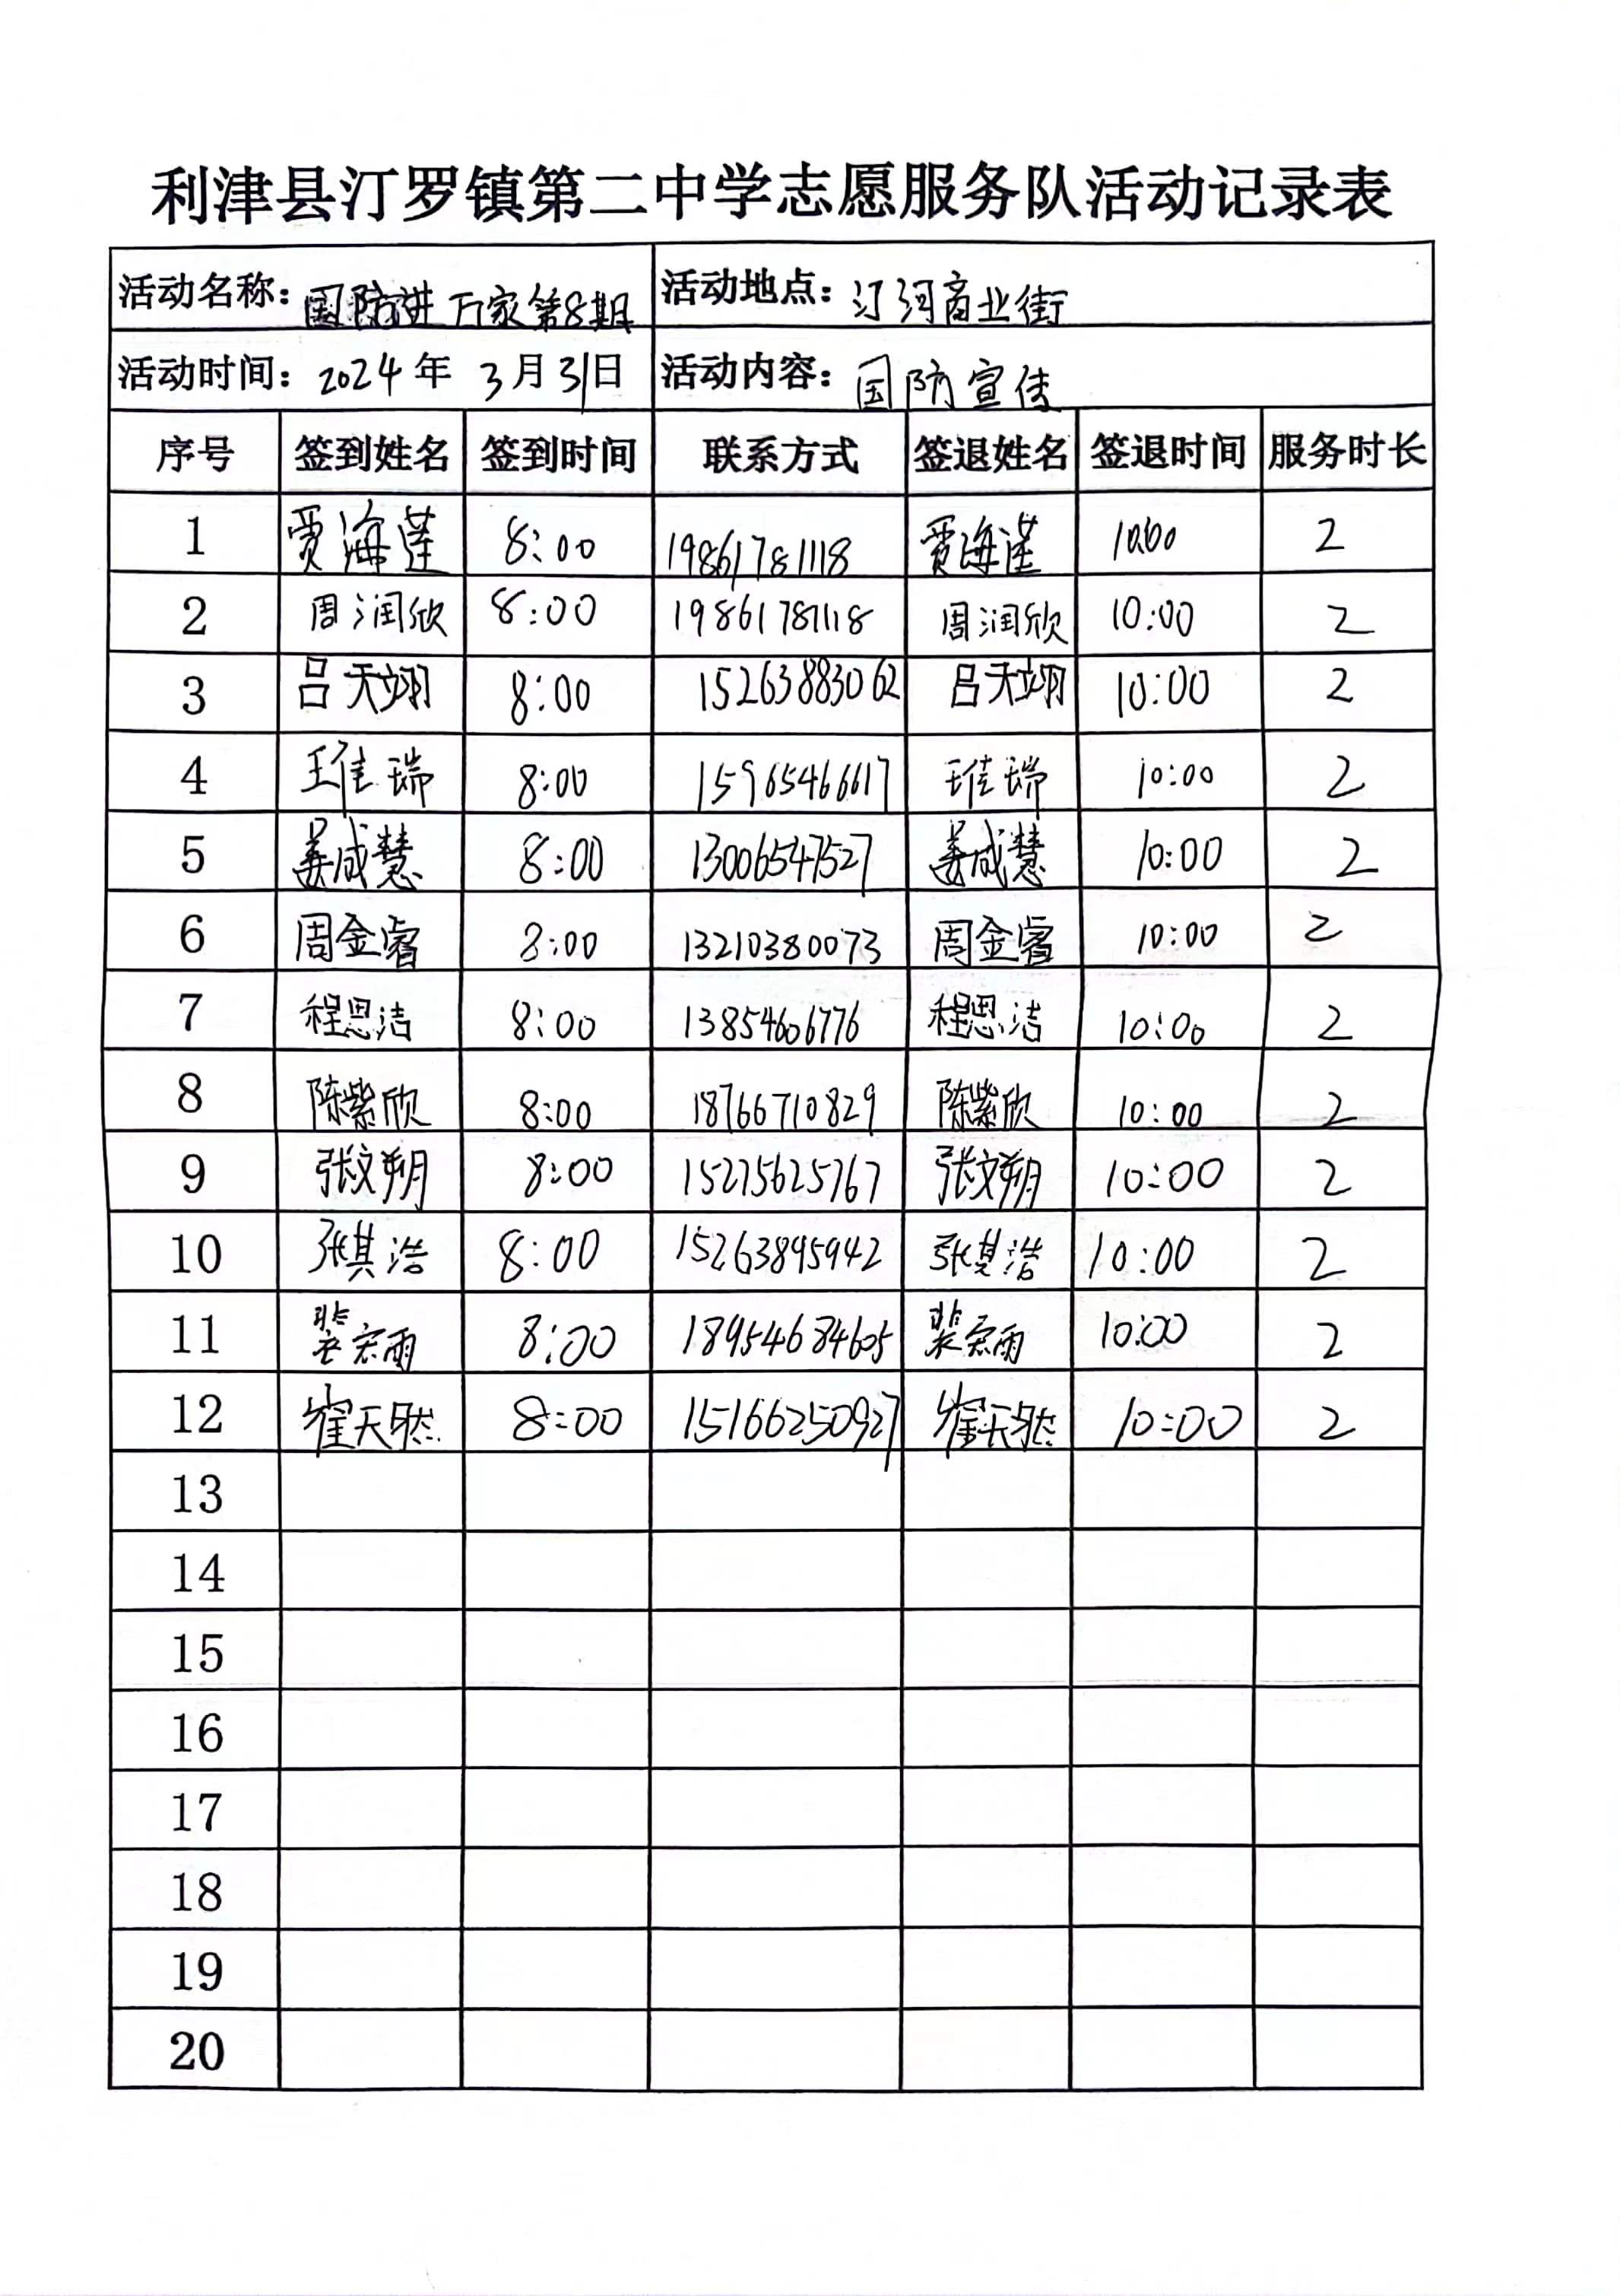 利津县汀罗镇第二中学志愿服务队活动记录表
活动名称：国防进万家第8期 活动地点：汀河商业街
活动时间：2024年 3月31日 活动内容：国防宣传
序号 签到姓名 签到时间 联系方式 签退姓名 签退时间 服务时长
1 贾海莲 8:00 19861781118 贾海莲 10:00 2
2 周润欣 8:00 19861781118 周润欣 10:00 2
3 吕天翊 8:00 15263883062 吕天翊 10:00 2
4 王佳瑞 8:00 15965466617 王佳瑞 10:00 2
5 姜成慧 8:00 13006547527 姜成慧 10:00 2
6 周金睿 8:00 13210380073 周金睿 10:00 2
7 程思洁 8:00 13854606776 程思洁 10:00 2
8 陈紫欣 8:00 18766710829 陈紫欣 10:00 2
9 张文朔 8:00 15275625767 张文朔 10:00 2
10 张其浩 8:00 15263895942 张其浩 10:00 2
11 裴宏雨 8:00 18954684605 裴宏雨 10:00 2
12 崔天然 8:00 15166250927 崔天然 10:00 2
13
14
15
16
17
18
19
20